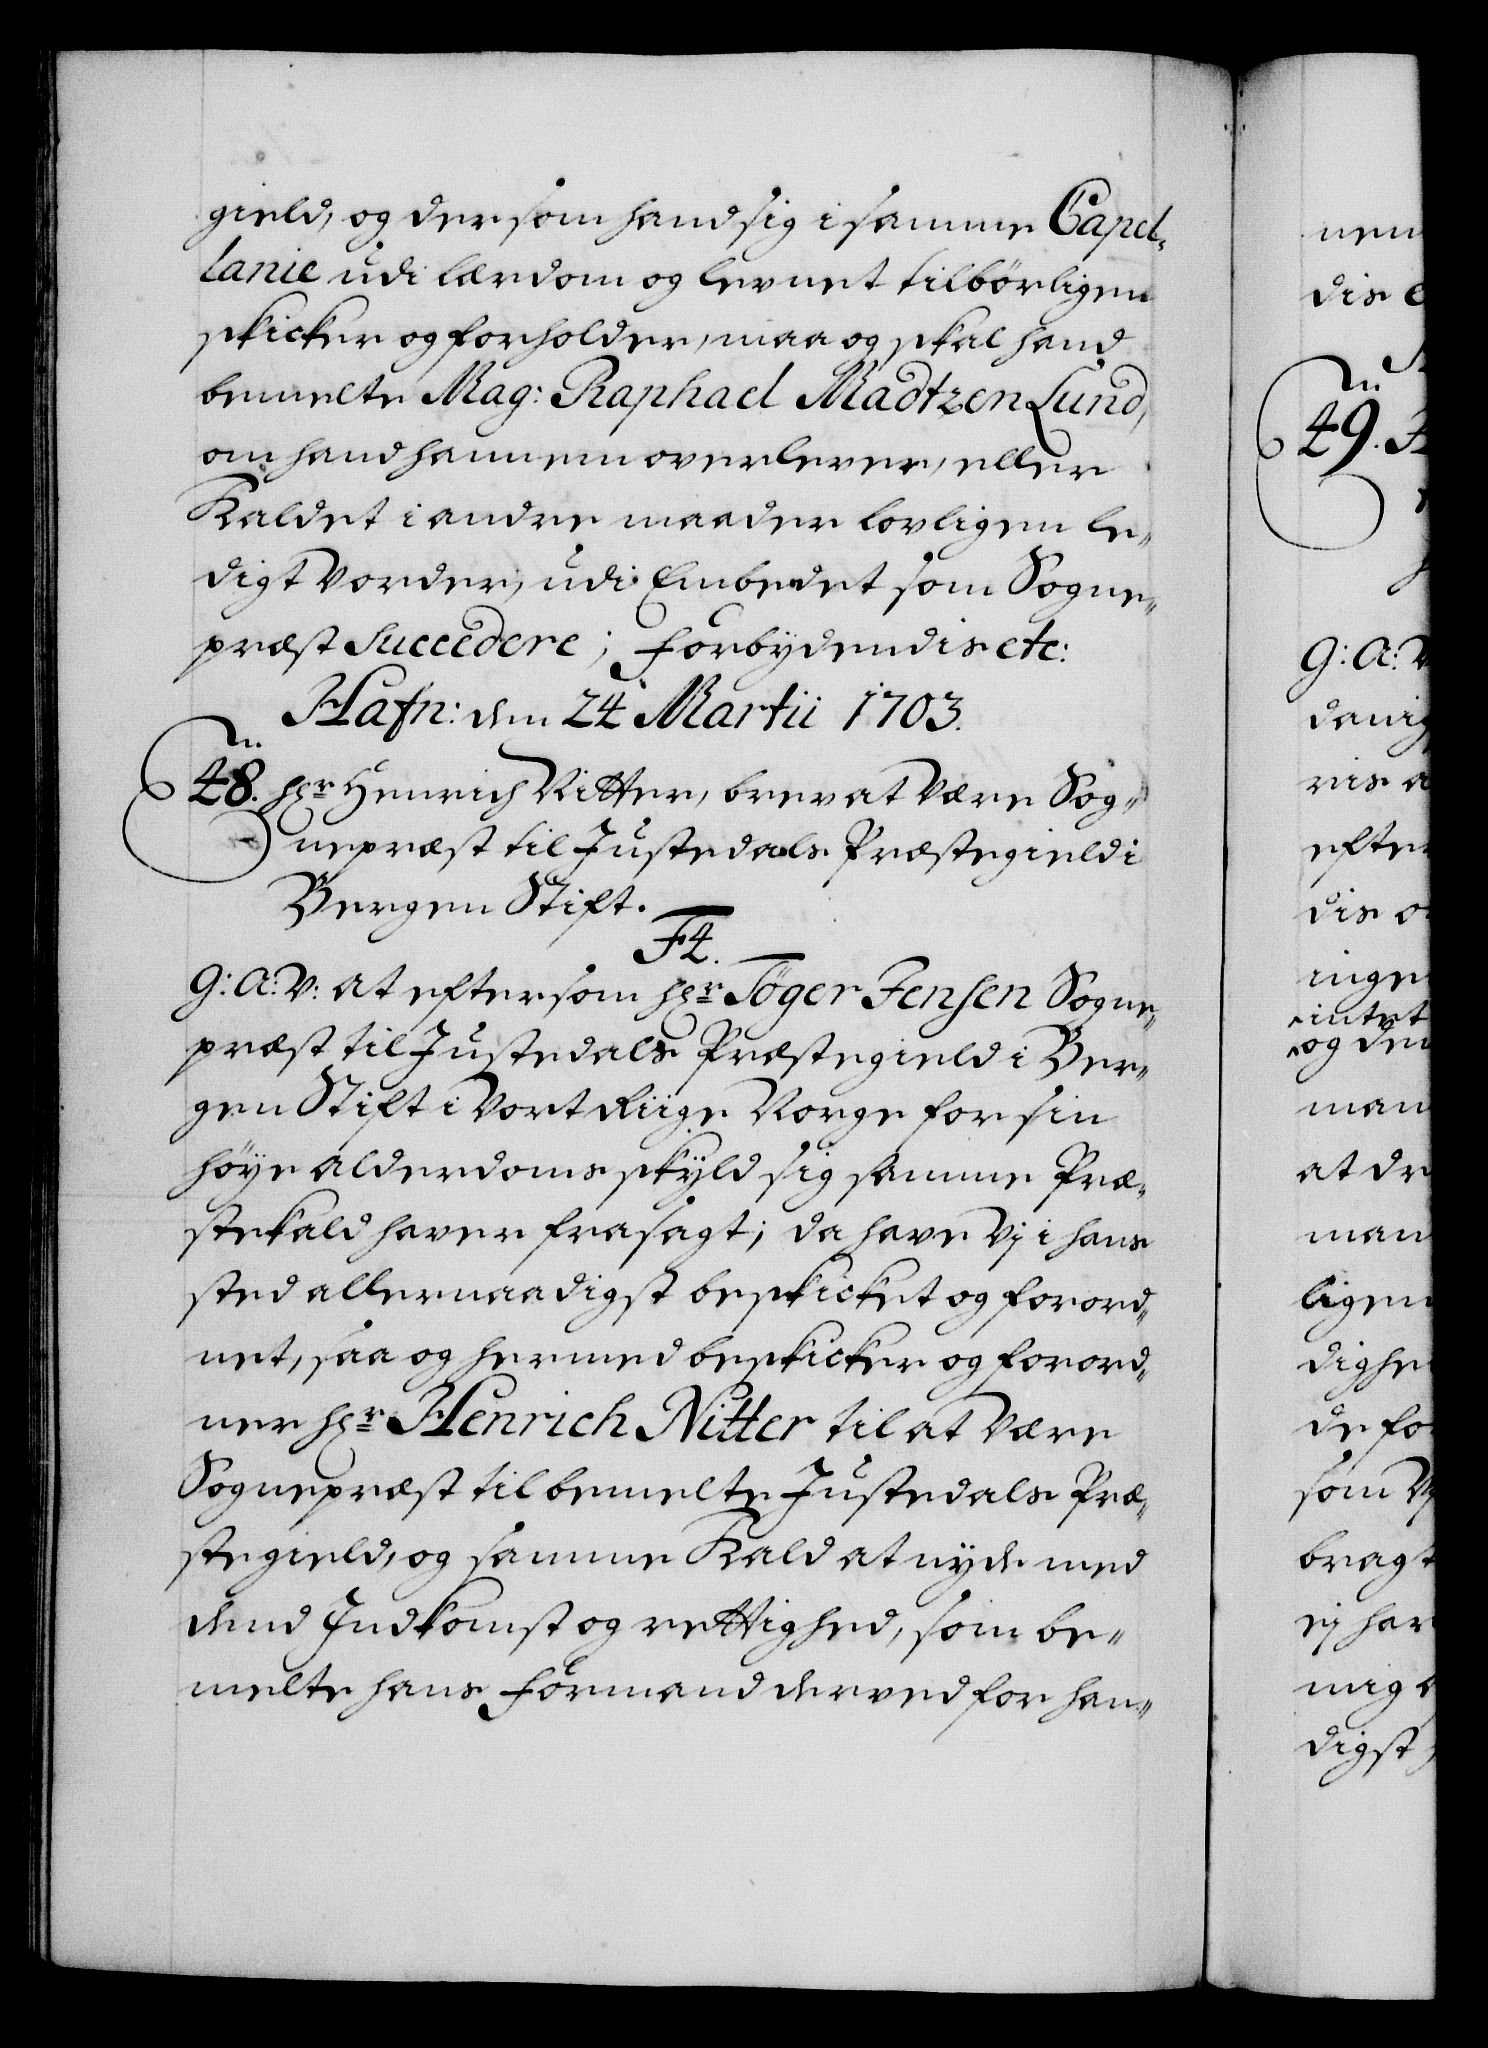 gield, og dersom hand sig i samme Capel-
lanie udi lærdom og levnet tilbørligen
skicker og forholder, maa og skal hand
bemelte Mag: Raphael Madtzen Lund,
om hand hannem overlever, eller
Kaldet i andre maader lovligen le-
digt vorder, udi Embedet som Sogne-
præst Succedere; Forbydendis etc:
Hafn: den 24 Martii 1703.
48. Hr Henrich Nitter, brev at være Sog-
nepræst til Justedals Præstegield i
Bergen Stift.
F4.
G: A: V: at eftersom Hr Töger Jensen Sogne-
præst til Justedals Præstegield i Ber-
gen Stift i Vort Riige Norge for sin
høye alderdoms skyld sig samme Præ-
stekald haver frasagt; da have Vj i hans
sted allernaadigst beskicket og forord-
net, saa og hermed beskicker og forord-
ner Hr Henrich Nitter til at være
Sognepræst til bemelte Justedals Præ-
stegield, og samme Kald at nyde med
dend Indkomst og rettighed, som be-
melte hans Formand derved for han-
49.
G: A: V
efter
dis
intet
og den
man
at
man
ligen
som Vj
digst